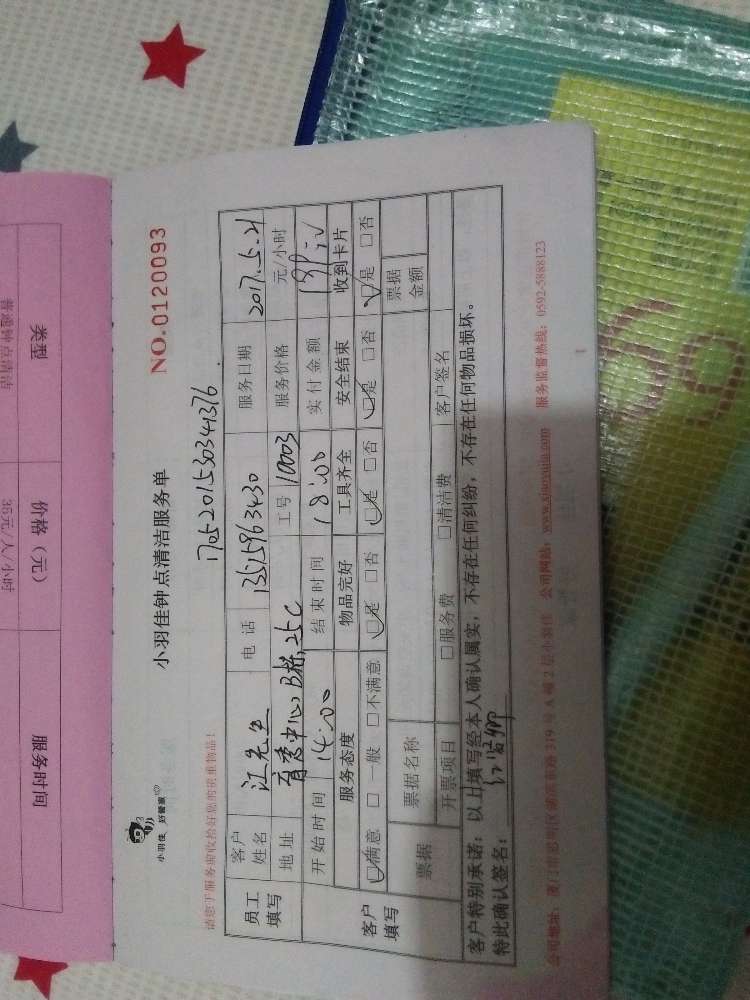 小羽佳 好管家
小羽佳钟点清洁服务单
NO.0120093
请您于服务前收拾好您的贵重物品！
1705201530341376
员工填写
客户姓名 江先生 电话 13515963430 服务日期 2017.5.21
地址 25C 工号 10003 服务价格 元/小时
开始时间 14:00 结束时间 18:00 实付金额
客户填写
服务态度 物品完好 工具齐全 安全结束 收到卡片
□满意 □一般 □不满意 □是 □否 □是 □否 □是 □否 □是 □否
票据 票据名称 票据金额
开票项目 □服务费 □清洁费 客户签名
客户特别承诺：以上填写经本人确认属实，不存在任何纠纷，不存在任何物品损坏。
特此确认签名：
公司地址：厦门市思明区湖滨东路319号A幢2层小羽佳 公司网站：www.xiaoyujia.com 服务监督热线：0592-5888123
类型 价格（元） 服务时间
普通钟点清洁 35元/人/小时